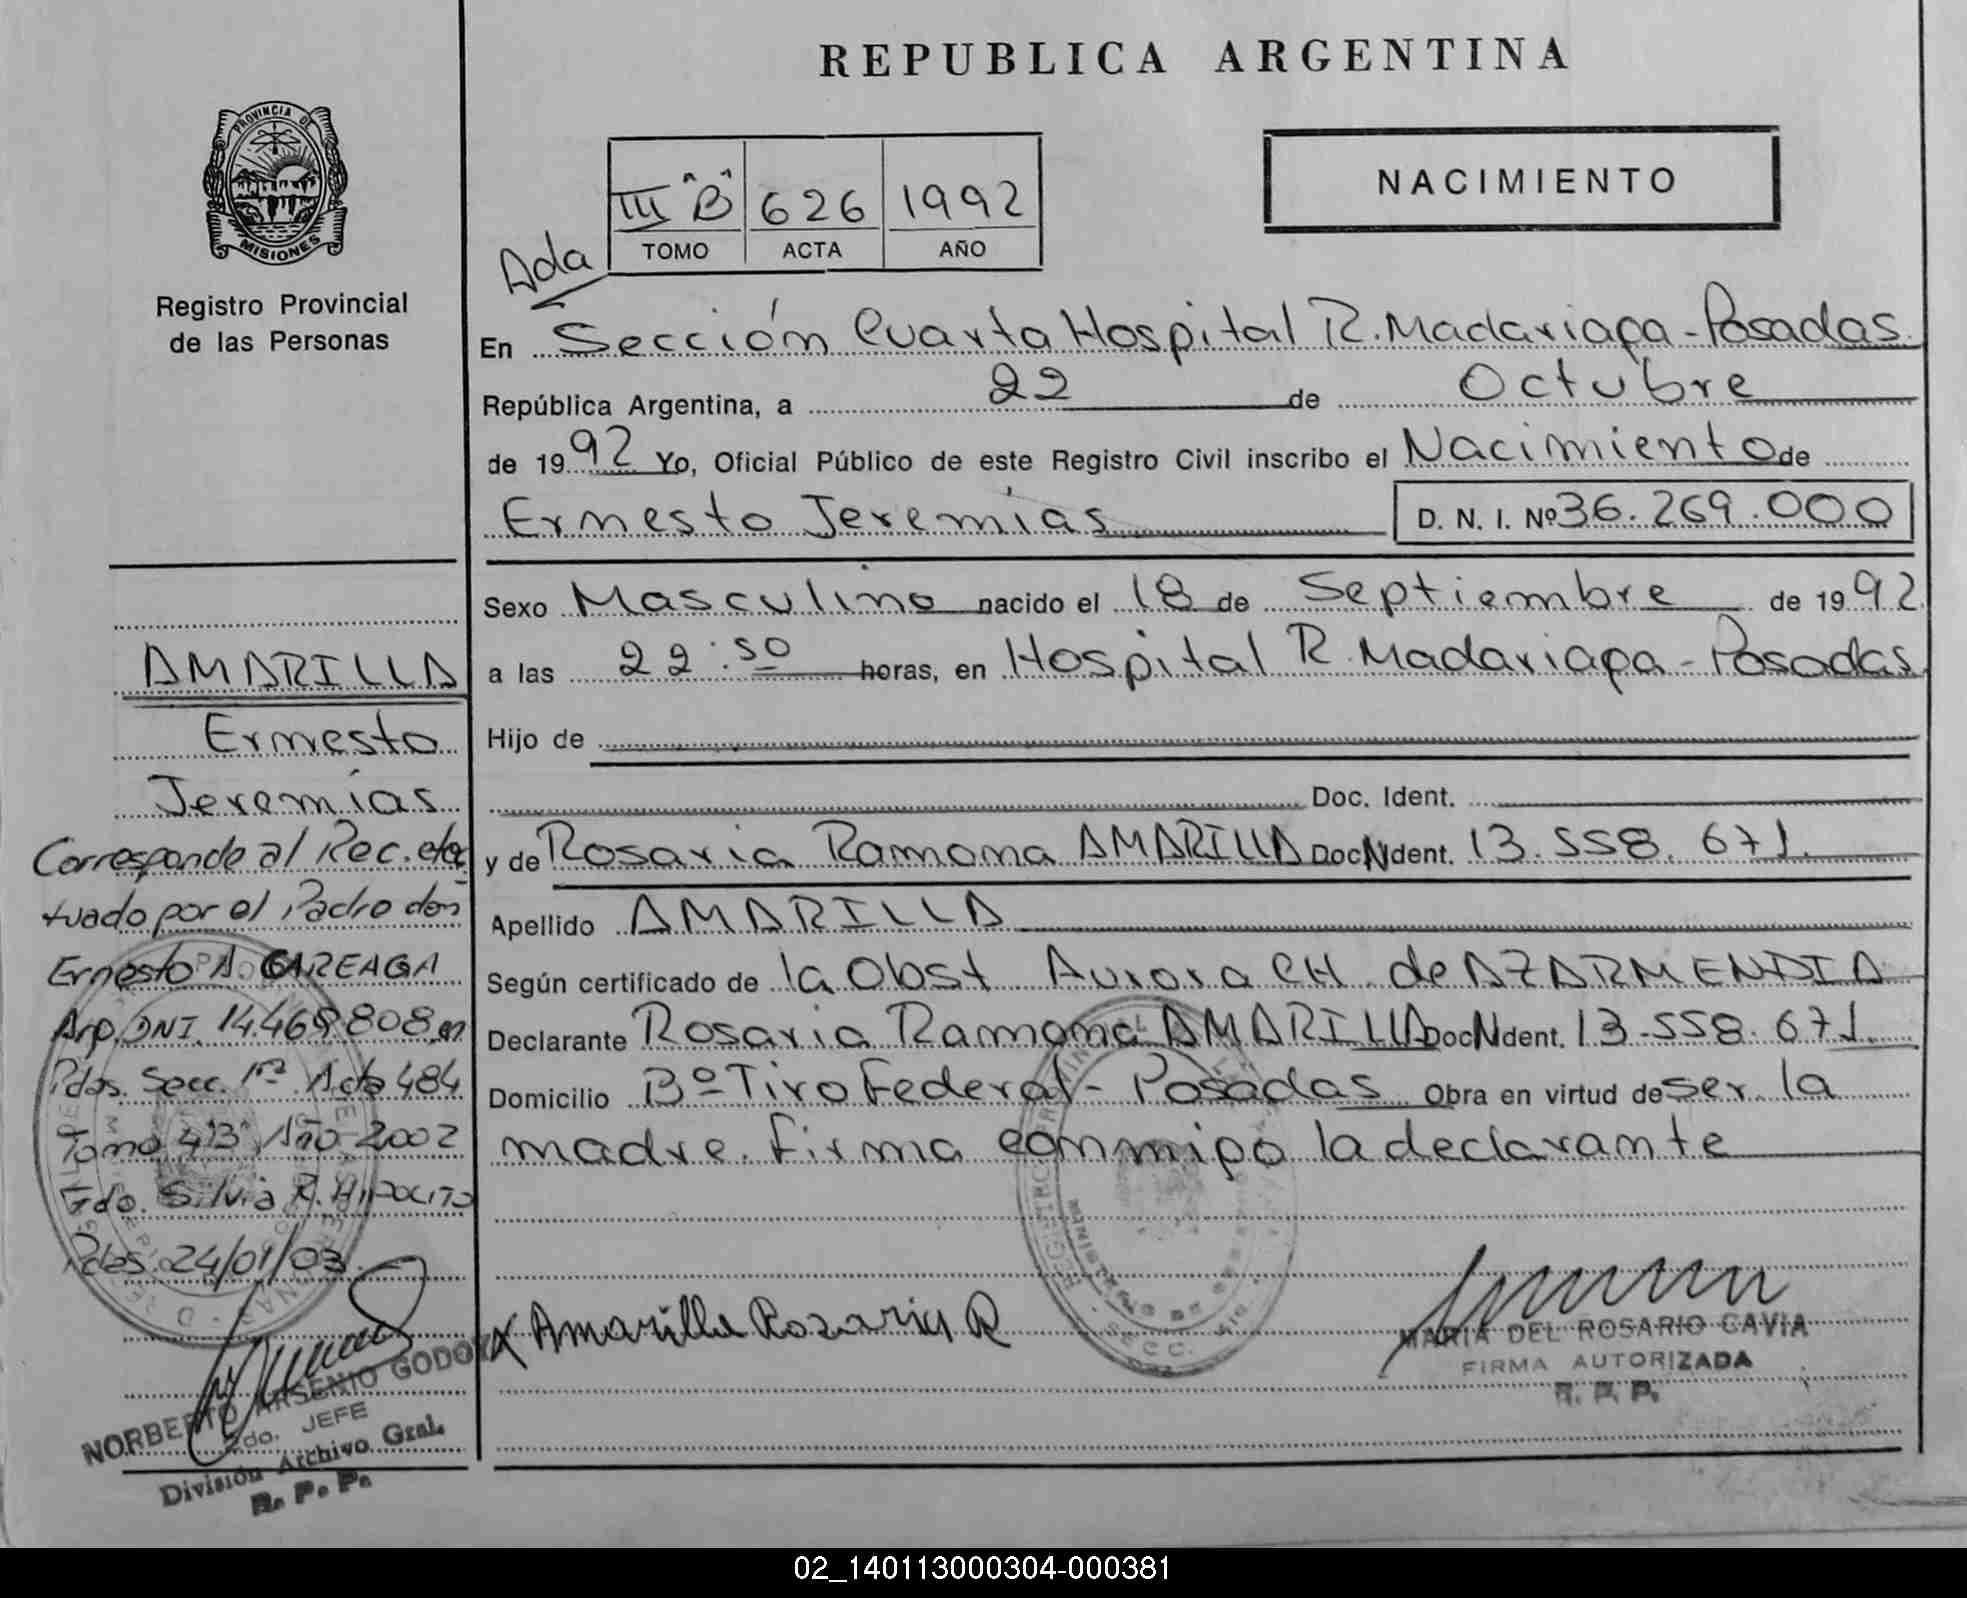 REPUBLICA ARGENTINA
PROVINCIA DE
MISIONES
Registro Provincial
de las Personas
NACIMIENTO
III "B" 626 1992
TOMO ACTA AÑO
Ada
En Sección Cuarta Hospital R. Madariaga - Posadas
República Argentina, a 22 de Octubre
de 1992 Yo, Oficial Público de este Registro Civil inscribo el Nacimiento de
Ernesto Jeremías D. N. I. Nº 36.269.000
Sexo Masculino nacido el 18 de Septiembre de 1992
a las 22:50 horas, en Hospital R. Madariaga - Posadas
Hijo de
Doc. Ident.
y de Rosaria Ramona AMARILLA Doc N Ident. 13.558.671.
Apellido AMARILLA
Según certificado de la Obst Aurora CH. de AZARMENDIA
Declarante Rosaria Ramona AMARILLA Doc N Ident. 13.558.671.
Domicilio Bº Tiro Federal - Posadas Obra en virtud de ser la
madre. Firma conmigo la declarante
AMARILLA
Ernesto
Jeremías
Corresponde al Rec. efec
tuado por el Padre don
Ernesto A. CAREAGA
Arg. DNI. 14.469.808 en
Pdas. Secc. 1ra Acta 484
Tomo 4"B" Año 2002
Fdo. Silvia R. HIPOLITO
Pdas. 24/01/03.
NORBERTO ARSENIO GODOY
2do. JEFE
División Archivo Gral.
R. P. P.
X Amarilla Rosaria R
MARIA DEL ROSARIO CAVIA
FIRMA AUTORIZADA
R. P. P.
02_140113000304-000381